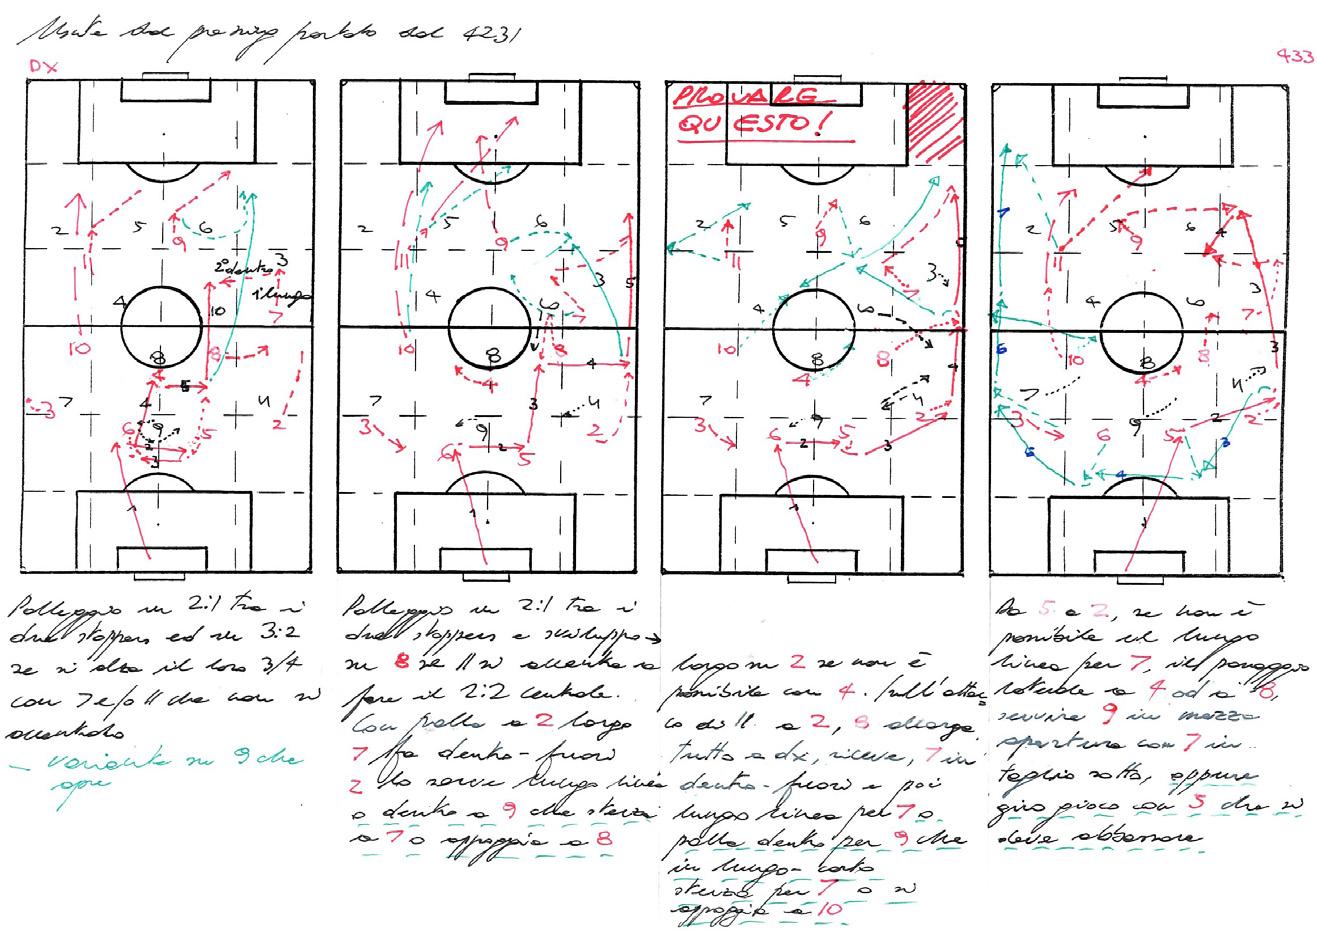 Uscite sul pressing portato dal 4231
DX
433
PROVARE
QUESTO!
2° dentro
1° lungo
Palleggio in 2:1 tra i
due stoppers ed in 3:2
se si alza il loro 3/4
con 7 e/o 11 che non si
accentrano
- variante su 9 che
apre
Palleggio in 2:1 tra i
due stoppers e sviluppo →
su 8 se 11 si accentra a
fare il 2:2 centrale.
Con palla a 2 largo
7 fa dentro-fuori
2 lo serve lungo linea
o dentro a 9 che sterza
a 7 o appoggia a 8
largo su 2 se non è
possibile con 4. Sull'attac
co di 11 a 2, 8 allarga
tutto a dx, riceve, 7 in
dentro-fuori e poi
lungo linea per 7 o
palla dentro per 9 che
in lungo-corto
sterza per 7 o si
appoggia a 10
Da 5 a 2, se non è
possibile il lungo
linea per 7, il passaggio
laterale a 4 od a 8,
servire 9 in mezza
apertura con 7 in
taglio sotto, oppure
giro gioco con 5 che si
deve abbassare